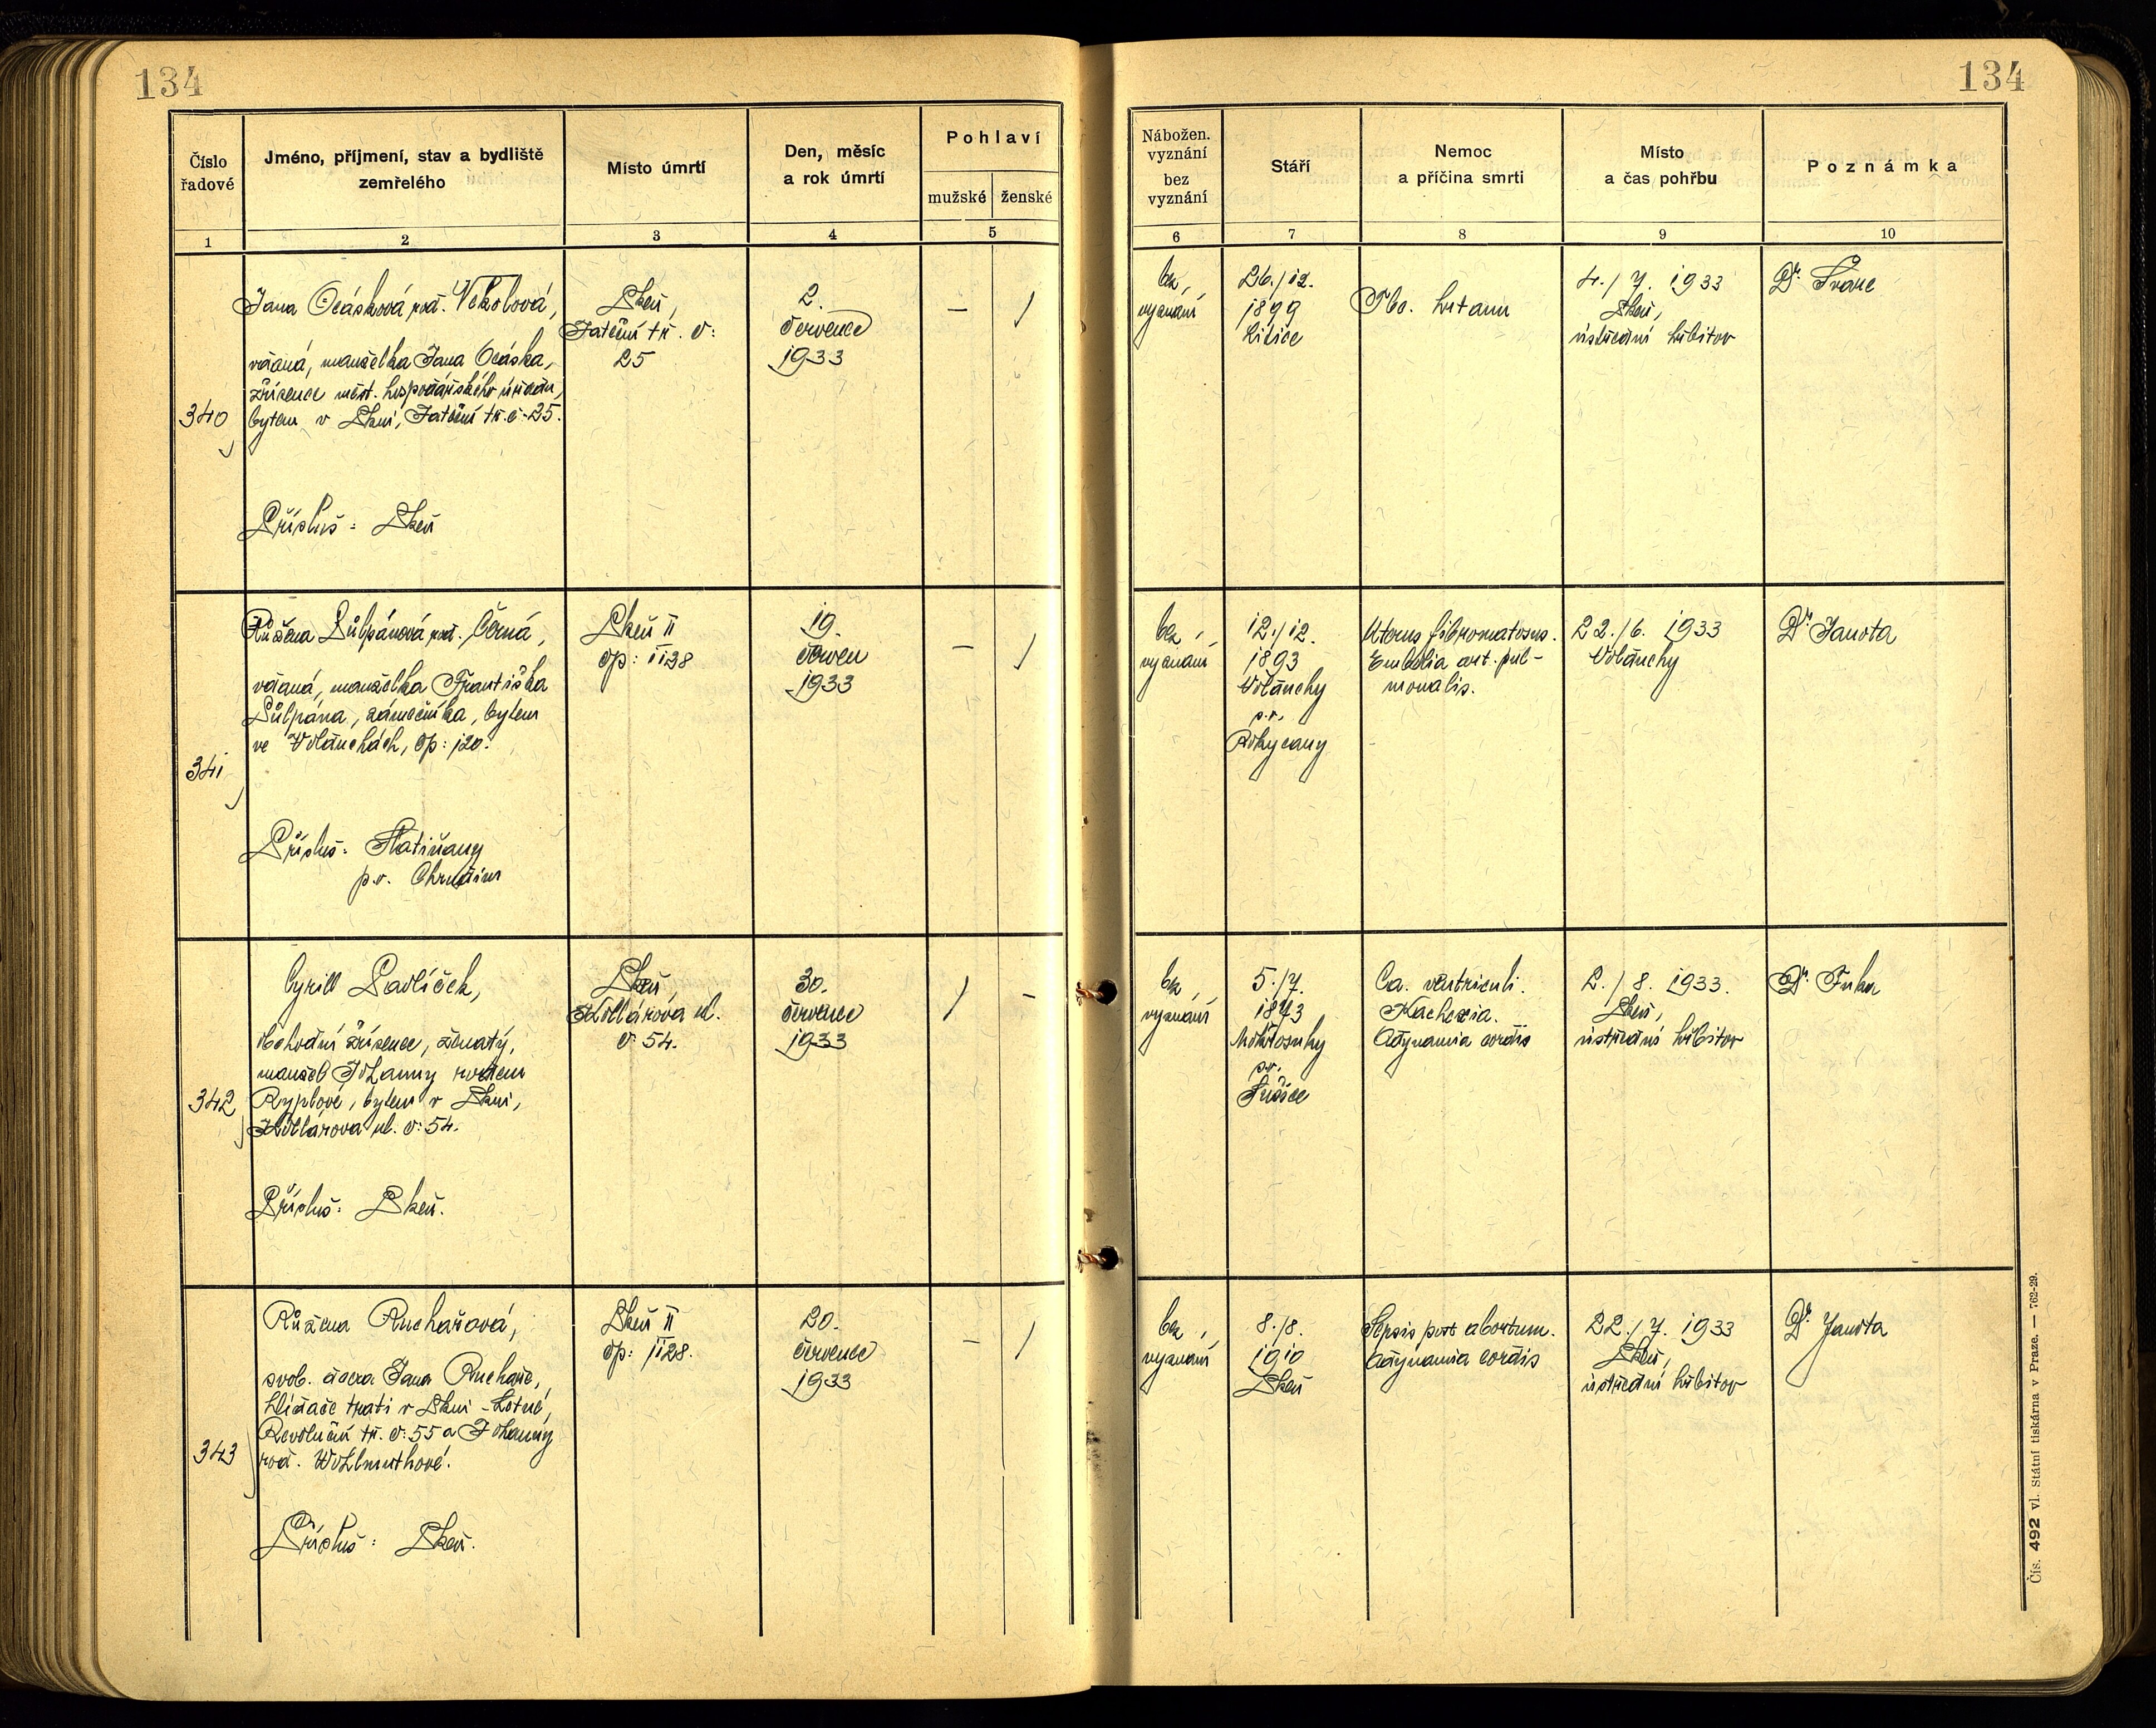 134
134
Číslo
řadové
Jméno, příjmení, stav a bydliště
zemřelého
Místo úmrtí
Den, měsíc
a rok úmrtí
Pohlaví
mužské
ženské
1
2
3
4
5
Nábožen.
vyznání
bez
vyznání
Stáří
Nemoc
a příčina smrti
Místo
a čas pohřbu
Poznámka
6
7
8
9
10
340
Jana Ocásková roz.
vdaná, manželka Jana Ocáska,
zřízence měst. hospodářského úřadu,
bytem v Plzni, tř. č: 25.
Přísluš: Plzeň
Plzeň,
tř. č:
25
2.
července
1933
–
/
bez
vyznání
26./12.
1899
Litice
Tbc. hrtanu
4./7. 1933
Plzeň,
ústřední hřbitov
Dr.
341
Růžena Půlpánová roz. Černá,
vdaná, manželka Františka
Půlpána, zámečníka, bytem
ve Volduchách, čp: 120.
Přísluš: Slatiňany
p.v. Chrudim
Plzeň II
čp: 1128
19.
červen
1933
–
/
bez
vyznání
12./12.
1893
Volduchy
p.v.
Rokycany
Uterus fibromatosus.
Embolia art. pul-
monalis.
22./6. 1933
Volduchy
Dr. Janota
342
Cyrill Pavlíček,
obchodní zřízenec, ženatý,
manžel Johanny rozem
Ryplové, bytem v Plzni,
Kollárova ul. č: 54.
Přísluš: Plzeň.
Plzeň,
Kollárova ul.
č: 54.
30.
července
1933
/
–
bez
vyznání
5./7.
1873
Mokrosuky
p.v.
Sušice
Ca. ventriculi.
Kachexia.
Adynamia cordis
2./8. 1933.
Plzeň,
ústřední hřbitov
Dr. Fuka
343
Růžena Ruchařová,
svob. dcera Jana Ruchaře,
hlídače trati v Plzni - Lobzích,
Revoluční tř. č: 55 a Johanny
roz. Wohlmuthové.
Přísluš: Plzeň.
Plzeň II
čp: 1128.
20.
července
1933
–
/
bez
vyznání
8./8.
1910
Plzeň
Sepsis post abortum.
Adynamia cordis
22./7. 1933
Plzeň,
ústřední hřbitov
Dr. Janota
Čís. 492 vl. Státní tiskárna v Praze. — 762-29.